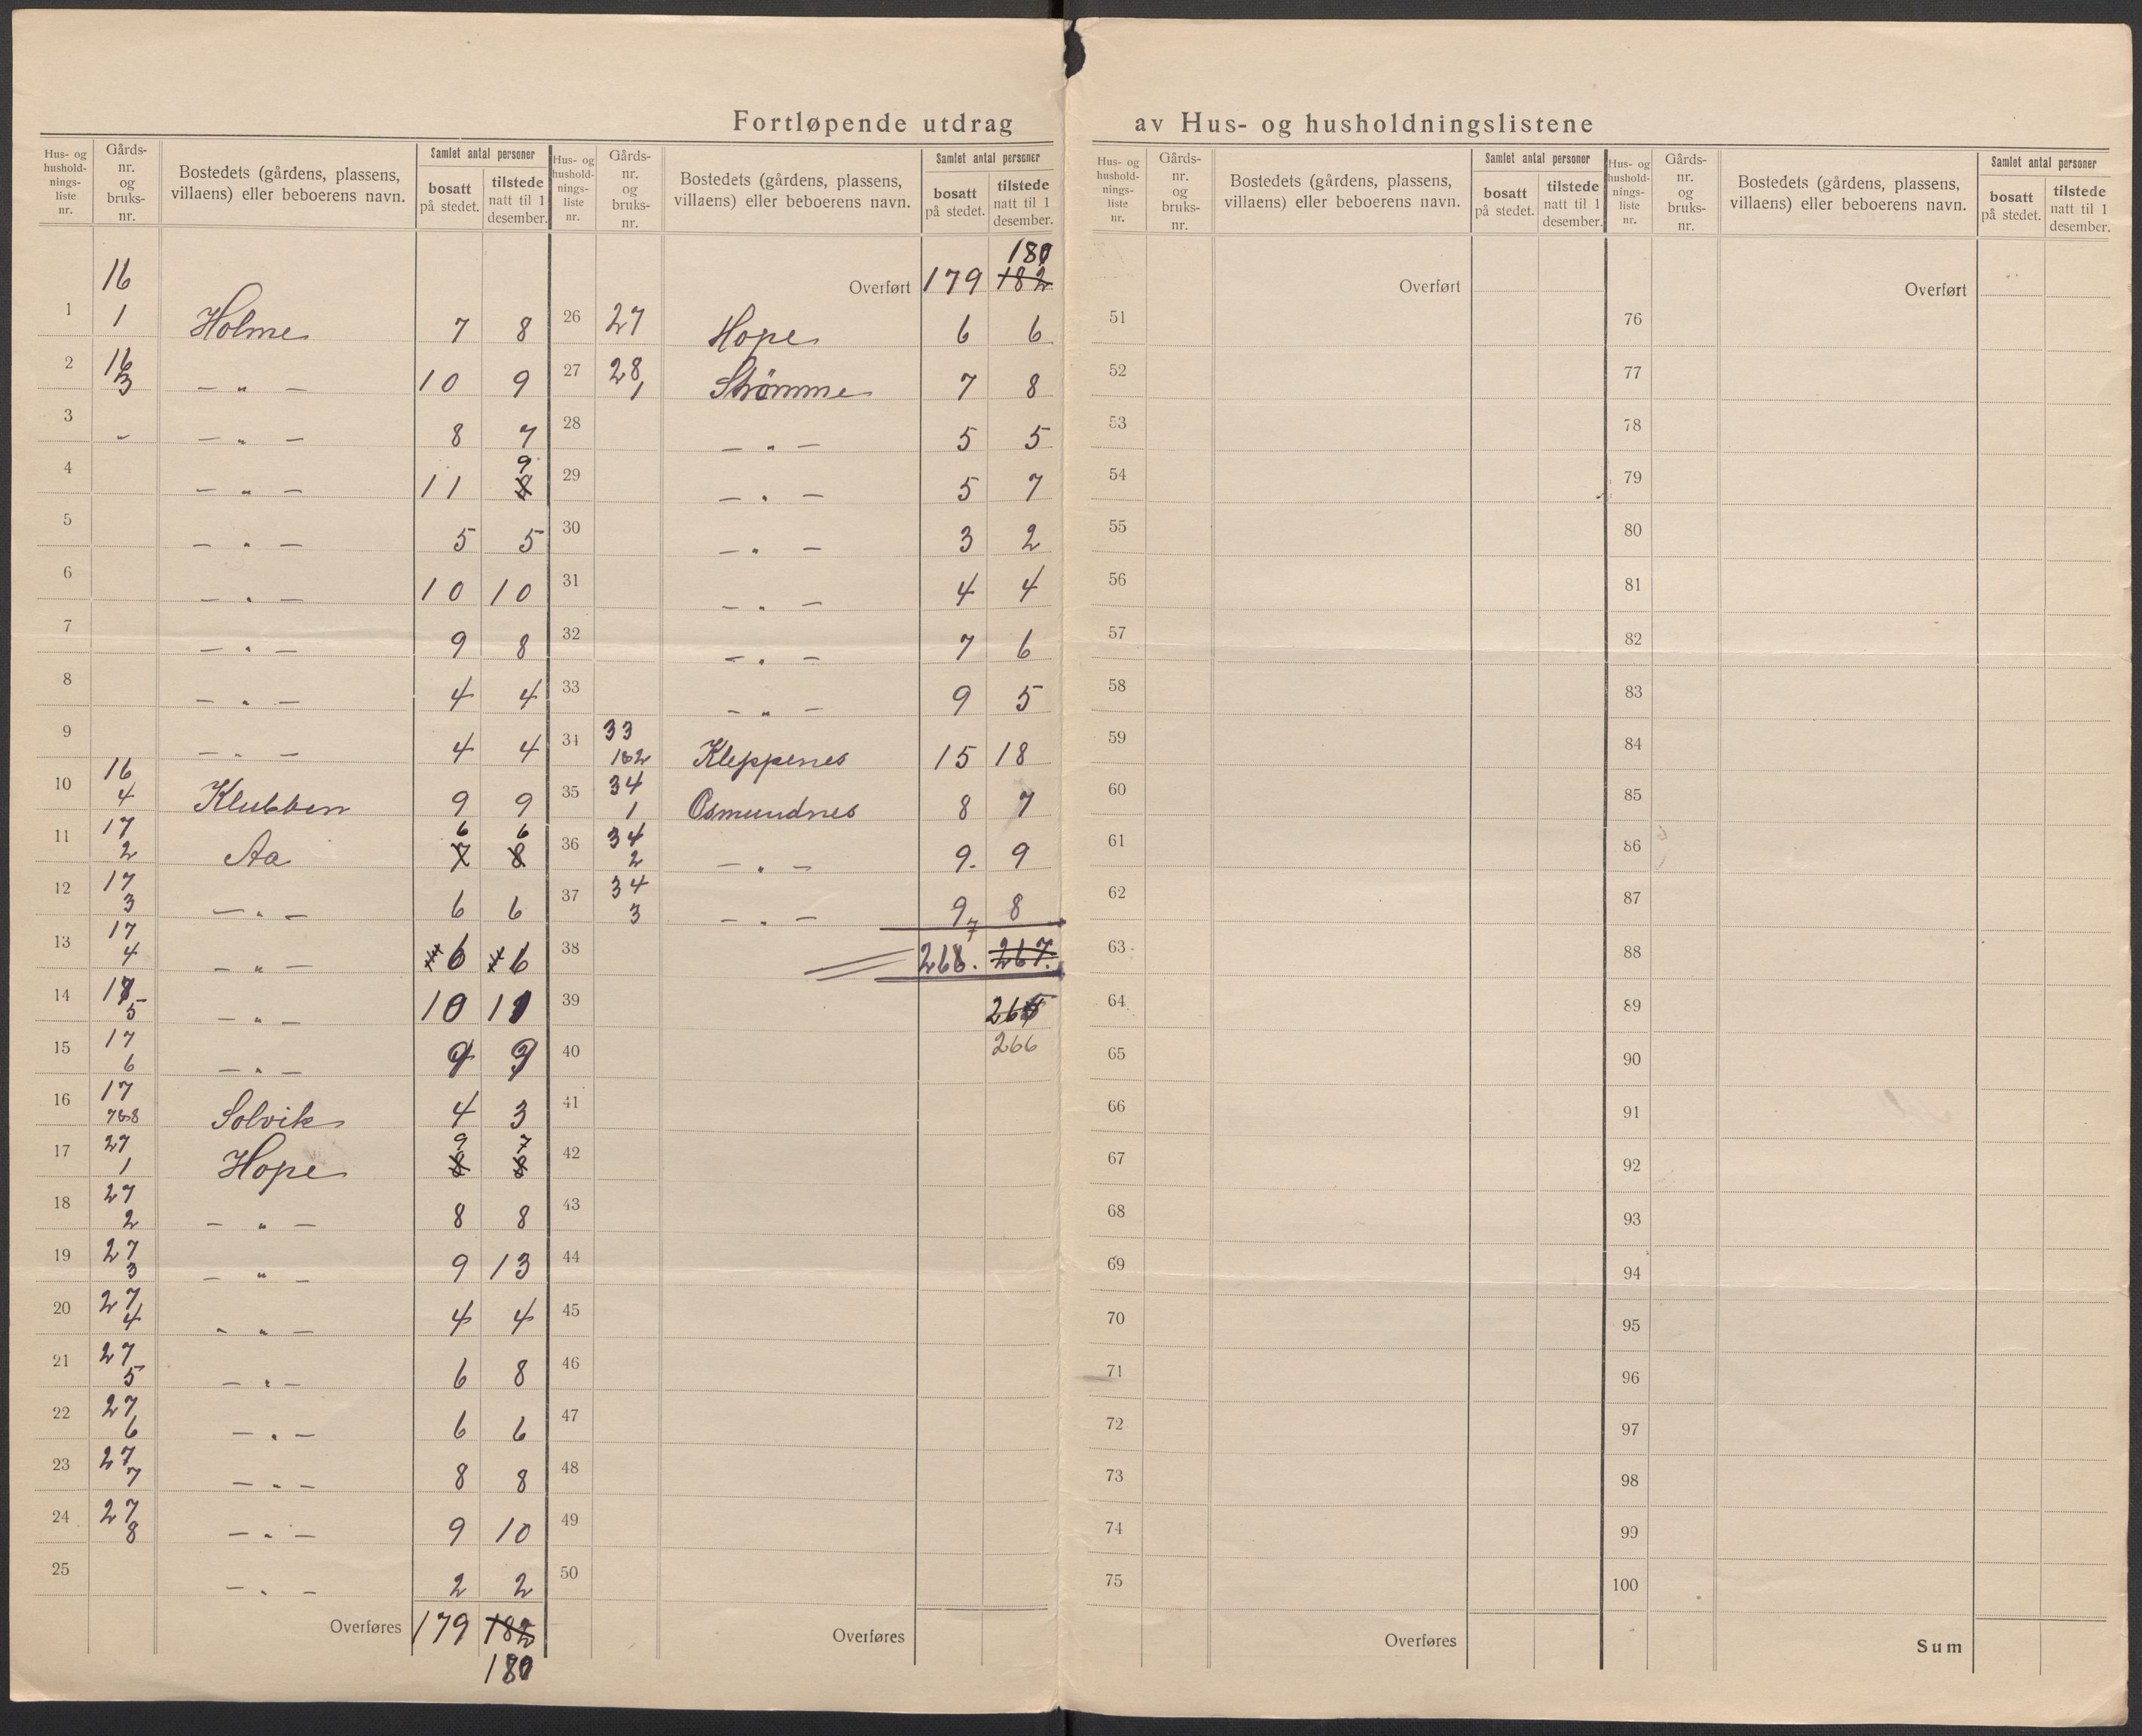 Fortløpende utdrag av Hus- og husholdningslistene
Hus- og hushold- nings- liste nr. Gårds- nr. og bruks- nr. Bostedets (gårdens, plassens, villaens) eller beboerens navn. Samlet antal personer bosatt på stedet. tilstede natt til 1 desember.
1 16 1 Holme 7 8
2 16 3 — " — 10 9
3 " — " — 8 7
4 — " — 11 8 9
5 — " — 5 5
6 — " — 10 10
7 — " — 9 8
8 — " — 4 4
9 — " — 4 4
10 16 4 Klubben 9 9
11 17 2 Aa 7 6 8 6
12 17 3 — " — 6 6
13 17 4 — " — 6 6
14 17 5 — " — 10
15 17 6 — " —
16 17 7&8 Solvik 4 3
17 27 1 Hope 8 9 8 7
18 27 2 — " — 8 8
19 27 3 — " — 9 13
20 27 4 — " — 4 4
21 27 5 — " — 6 8
22 27 6 — " — 6 6
23 27 7 — " — 8 8
24 27 8 — " — 9 10
25 — " — 2 2
Overføres 179 182
180
Hus- og hushold- nings- liste nr. Gårds- nr. og bruks- nr. Bostedets (gårdens, plassens, villaens) eller beboerens navn. Samlet antal personer bosatt på stedet. tilstede natt til 1 desember.
180
Overført 179 182
26 27 Hope 6 6
27 28 1 Strömme 7 8
28 — " — 5 5
29 — " — 5 7
30 — " — 3 2
31 — " — 4 4
32 — " — 7 6
33 — " — 9 5
34 33 1&2 Kleppenes 15 18
35 34 1 Osmundnes 8 7
36 34 2 — " — 9. 9
37 34 3 — " — 9 8
7
38 268. 267.
39
40 266
41
42
43
44
45
46
47
48
49
50
Overføres
Hus- og hushold- nings- liste nr. Gårds- nr. og bruks- nr. Bostedets (gårdens, plassens, villaens) eller beboerens navn. Samlet antal personer bosatt på stedet. tilstede natt til 1 desember.
Overført
51
52
53
54
55
56
57
58
59
60
61
62
63
64
65
66
67
68
69
70
71
72
73
74
75
Overføres
Hus- og hushold- nings- liste nr. Gårds- nr. og bruks- nr. Bostedets (gårdens, plassens, villaens) eller beboerens navn. Samlet antal personer bosatt på stedet. tilstede natt til 1 desember.
Overført
76
77
78
79
80
81
82
83
84
85
86
87
88
89
90
91
92
93
94
95
96
97
98
99
100
Sum